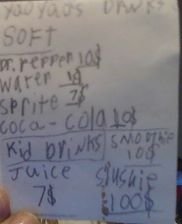 yaoyaos DRINKS
SOFT
Dr. Pepper 10$
water 1$
Sprite 7$
Coca-Cola 10$
Kid Drinks
Smoothie
10$
Juice
7$
Slushie
100$